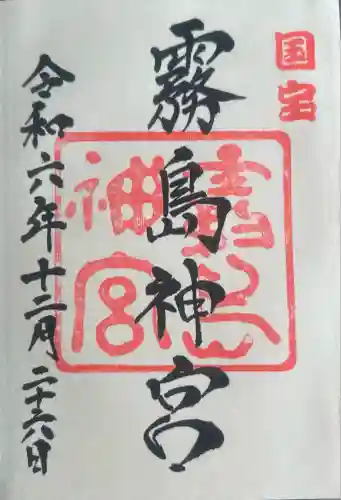 国宝
霧島神宮
霧島神宮
令和六年十二月二十八日